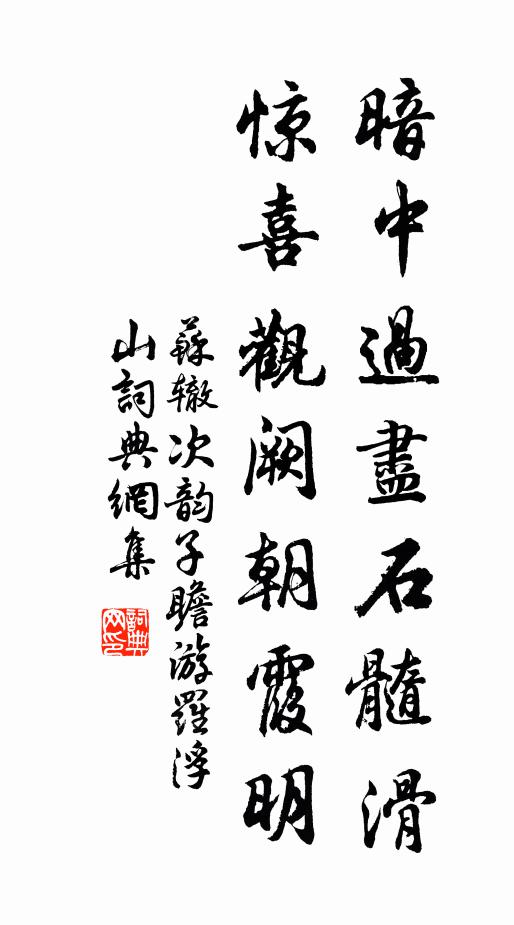 暗中過盡石髓滑
惊喜觀阙朝霞明
蘇辙次韵子瞻游羅浮
山詞典網集
詞典
网印